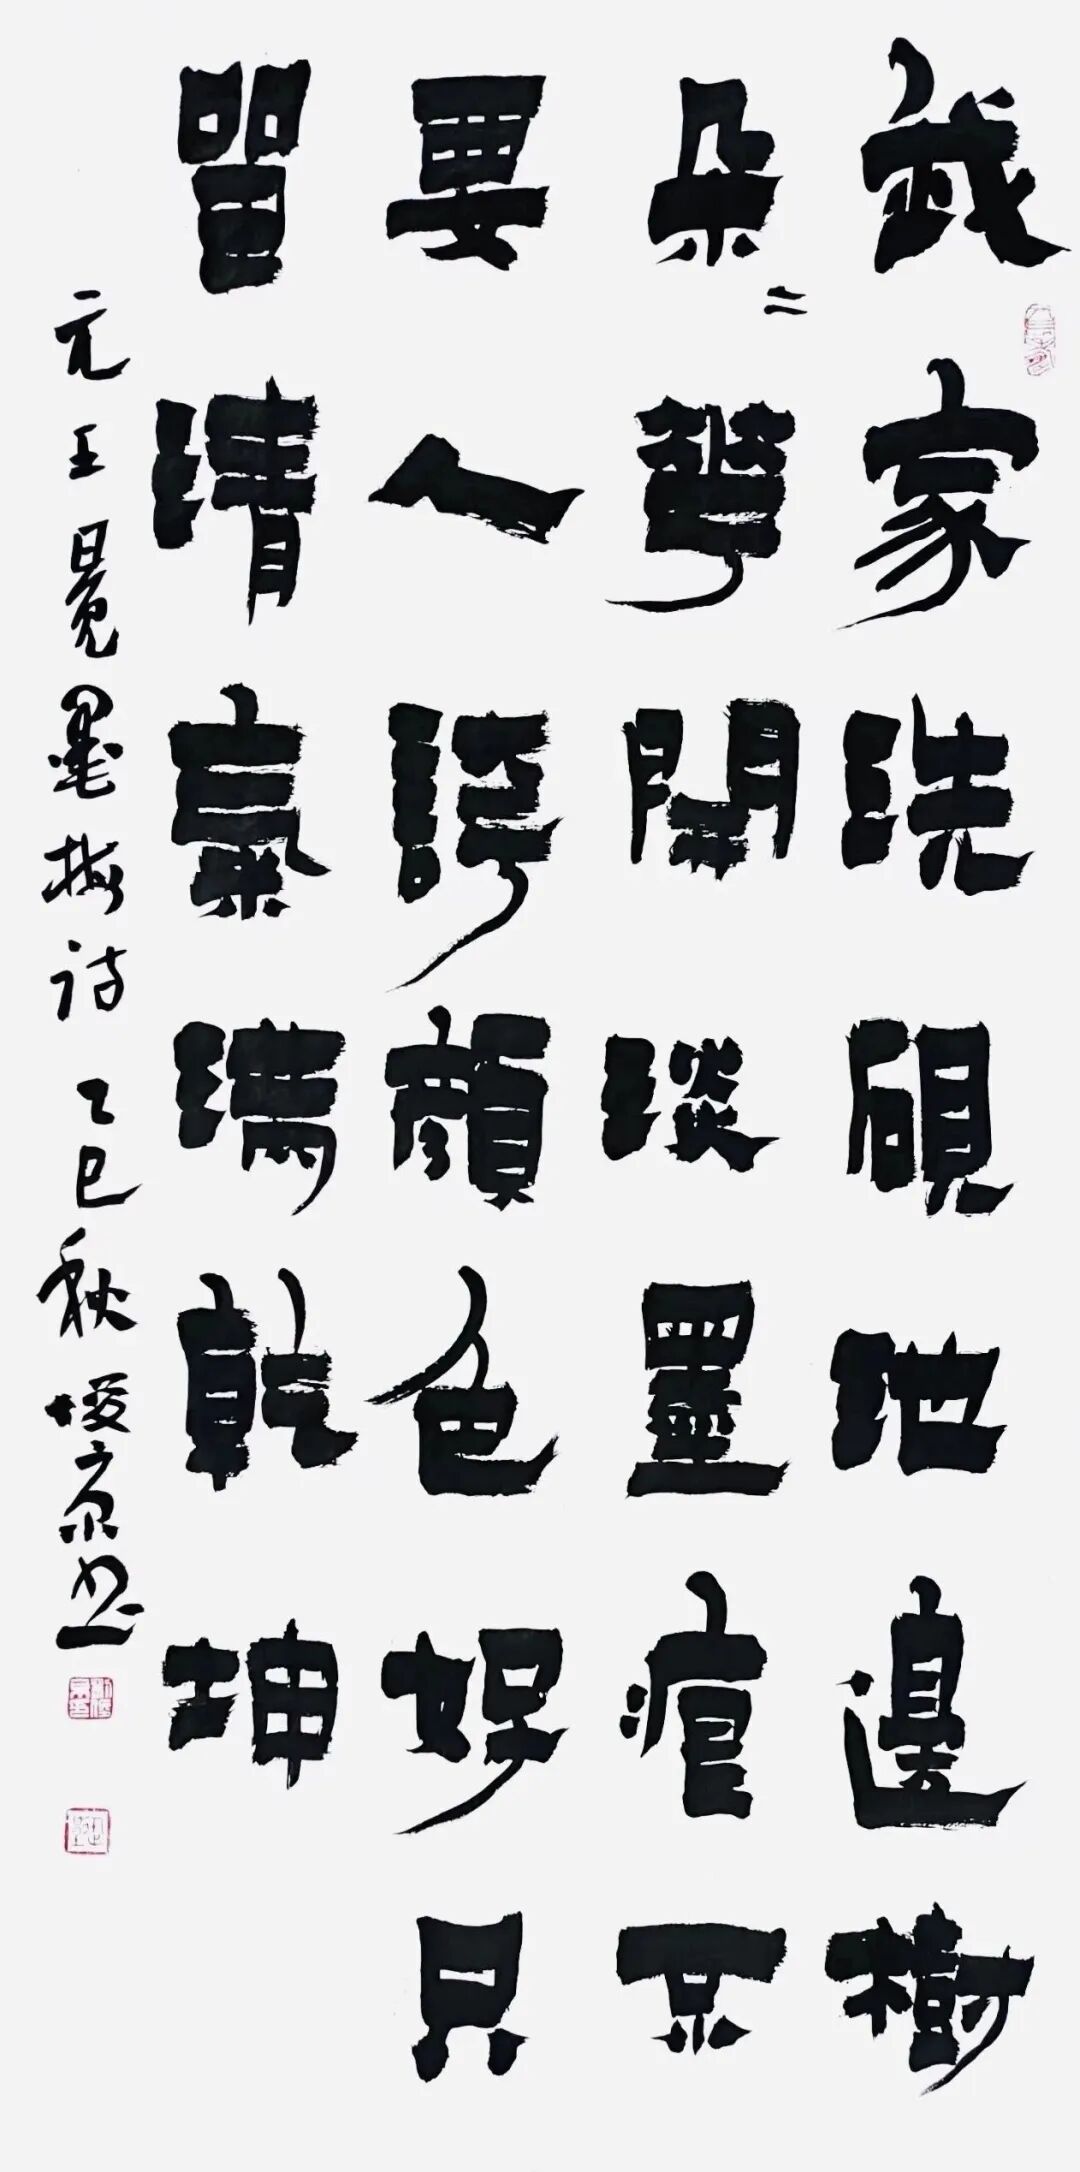 我家洗硯池邊樹
朵〻華開淡墨痕不
要人誇顏色好只
留清氣滿乾坤
元王冕墨梅詩 乙巳秋 京書